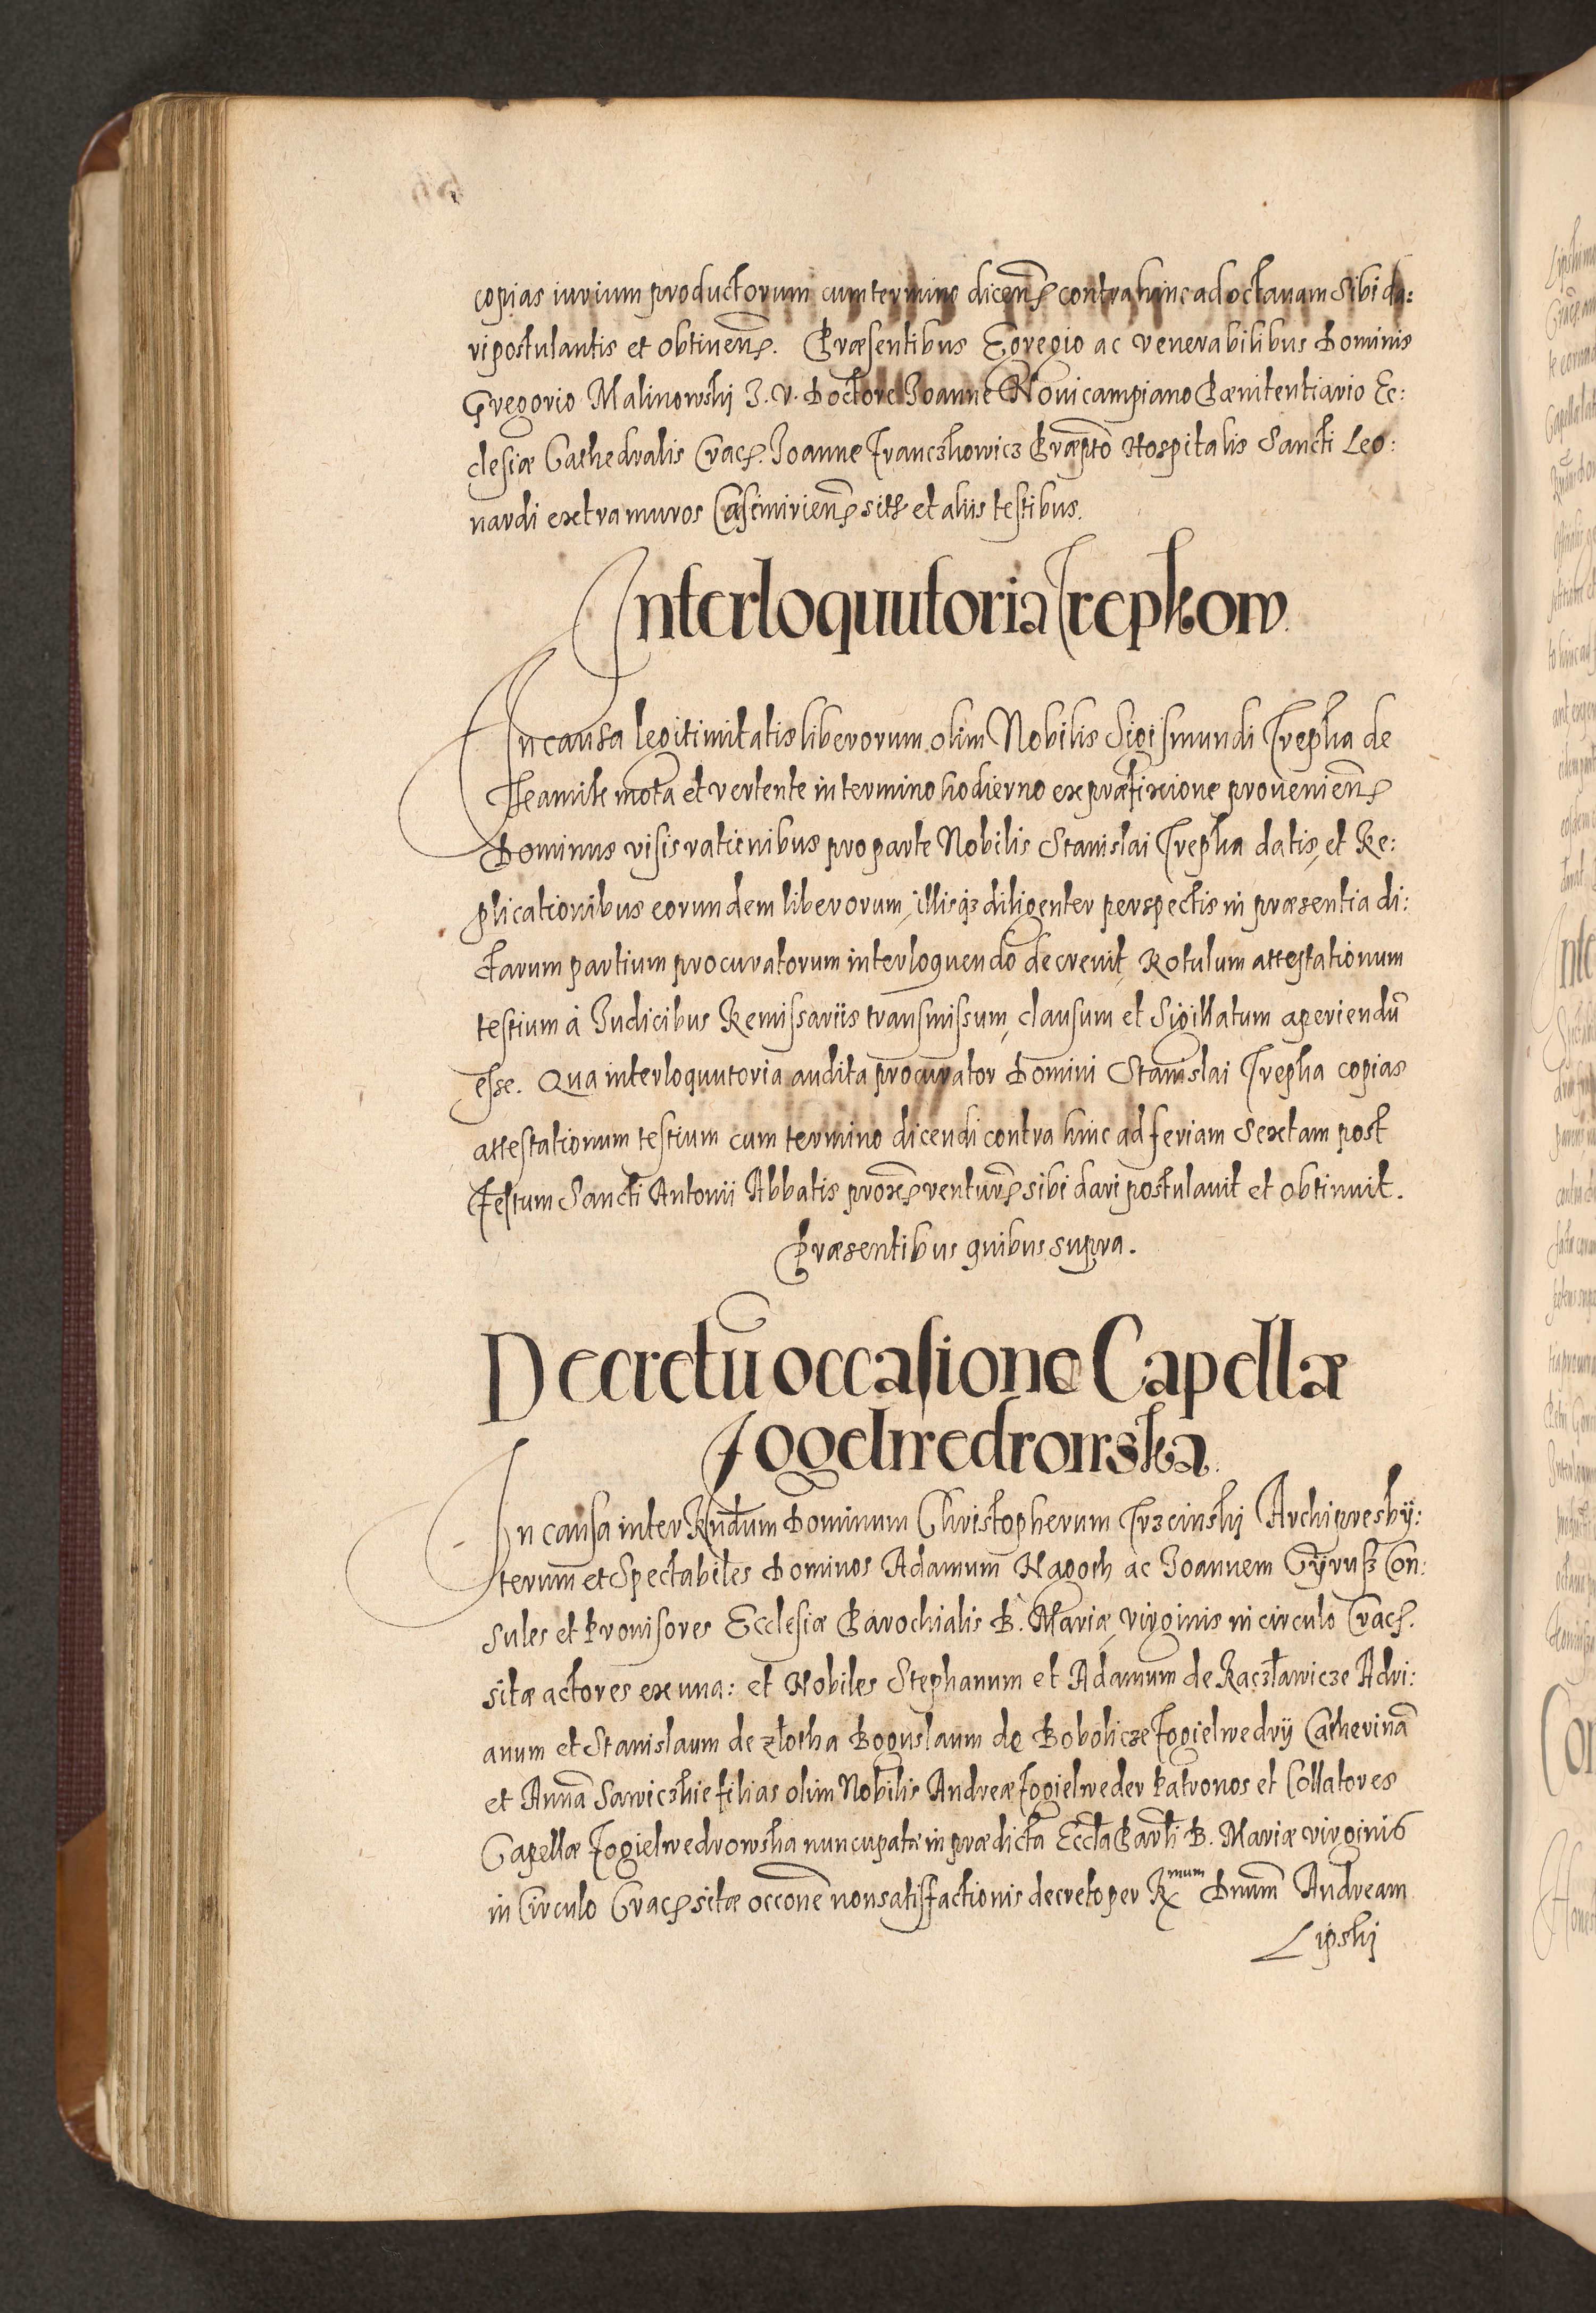 copias iurium productorum cum termino dicen contra hinc ad octauam sibi da:
ri postulantis et obtinen. Præsentibus Egregio ac venerabilibus Dominis
Gregorio Malinowskij I. V. Doctore Ioanne Nouicampiano Pænitentiario Ec:
clesiæ Cathedralis Crac. Ioanne Franczkowicz Præpto Hospitalis Sancti Leo:
nardi extra muros Casimirien sitt et aliis testibus.
Interloquutoria Trepkow.
In causa legitimitatis liberorum olim Nobilis Sigismundi Trepka de
mota et vertente in termino hodierno ex præfixione prouenien
Dominus visis rationibus pro parte Nobilis Stanislai Trepka datis, et Re:
plicationibus eorundem liberorum, illisq3 diligenter perspectis in præsentia di:
ctarum partium procuratorum interloquendo decreuit, Rotulum attestationum
testium à Iudicibus Remissariis transmissum, clausum et Sigillatum aperiendū
esse. Qua interloquutoria audita procurator Domini Stanislai Trepka copias
attestationum testium cum termino dicendi contra hinc ad feriam Sextam post
Festum Sancti Antonii Abbatis prox ventur sibi dari postulauit et obtinuit.
Præsentibus quibus supra.
Decretū occasione Capellæ
Fogelwedrowska.
In causa inter Rndum Dominum Christopherum Trzcinskij Archipresby:
terum et Spectabiles Dominos Adamum Nagoth ac Ioannem Cÿruß Con:
sules et Prouisores Ecclesiæ Parochialis B. Mariæ virginis in circulo Crac.
sitæ actores ex una: et Nobiles Stephanum et Adamum de Raczławicze Adri:
anum et Stanislaum de złotha Boguslaum de Bobolicze Fogielwedrij Catherinā
et Annā Sawiczkie filias olim Nobilis Andreæ Fogielweder Patronos et Collatores
Capellæ Fogielwedrowska nuncupatæ in prædicta Eccła Parłi B. Mariæ virginis
in Circulo Crac sitæ occone non satisfactionis decreto per R mum Dnum Andream
Lipskij